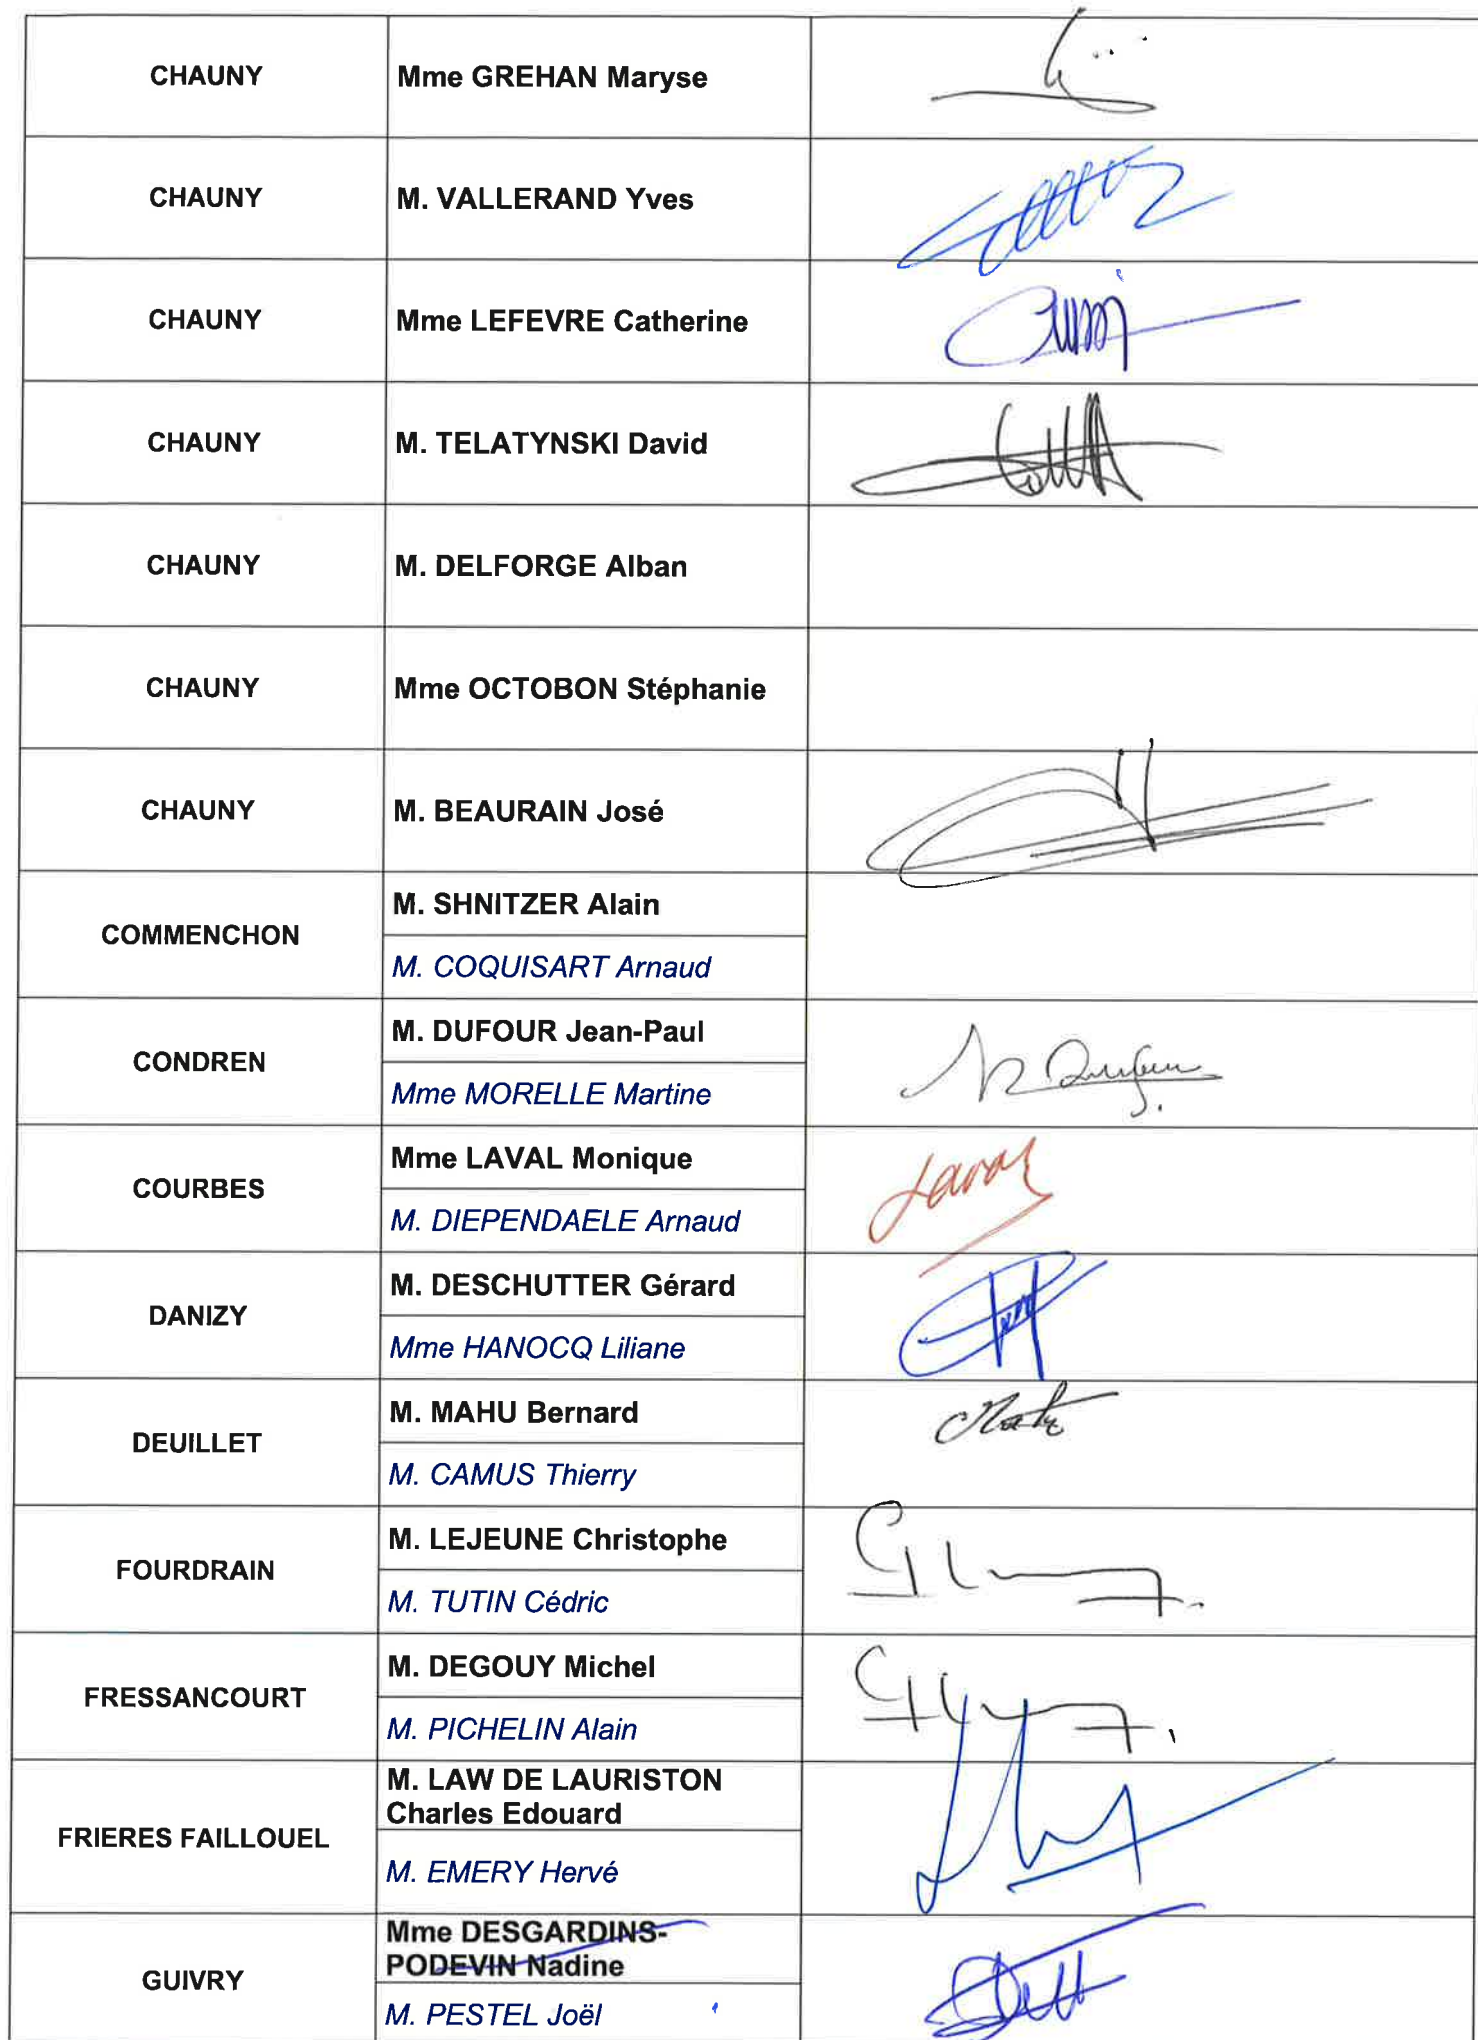 CHAUNY
Mme GREHAN Maryse
CHAUNY
M. VALLERAND Yves
CHAUNY
Mme LEFEVRE Catherine
CHAUNY
M. TELATYNSKI David
CHAUNY
M. DELFORGE Alban
CHAUNY
Mme OCTOBON Stéphanie
CHAUNY
M. BEAURAIN José
COMMENCHON
M. SHNITZER Alain
M. COQUISART Arnaud
CONDREN
M. DUFOUR Jean-Paul
Mme MORELLE Martine
COURBES
Mme LAVAL Monique
M. DIEPENDAELE Arnaud
Laval
DANIZY
M. DESCHUTTER Gérard
Mme HANOCQ Liliane
DEUILLET
M. MAHU Bernard
M. CAMUS Thierry
FOURDRAIN
M. LEJEUNE Christophe
M. TUTIN Cédric
FRESSANCOURT
M. DEGOUY Michel
M. PICHELIN Alain
FRIERES FAILLOUEL
M. LAW DE LAURISTON
Charles Edouard
M. EMERY Hervé
GUIVRY
Mme DESGARDINS-
PODEVIN Nadine
M. PESTEL Joël